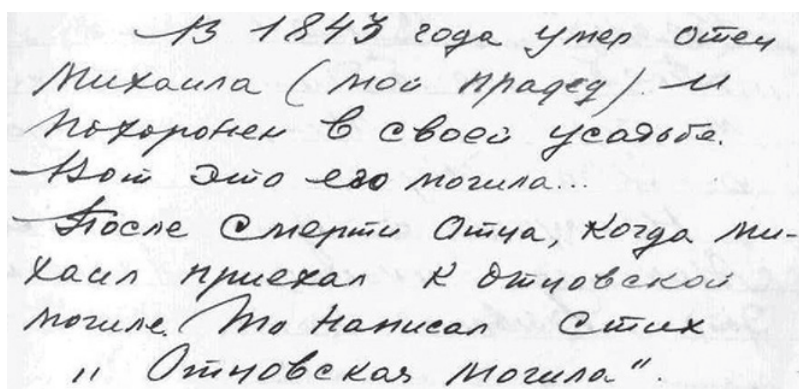 В 1843 года умер отец
Михаила (мой прадед) и
похоронен в своей усадьбе.
Вот это его могила...
После смерти отца, когда Ми-
хаил приехал к отцовской
могиле. То написал стих
„ Отцовская могила".